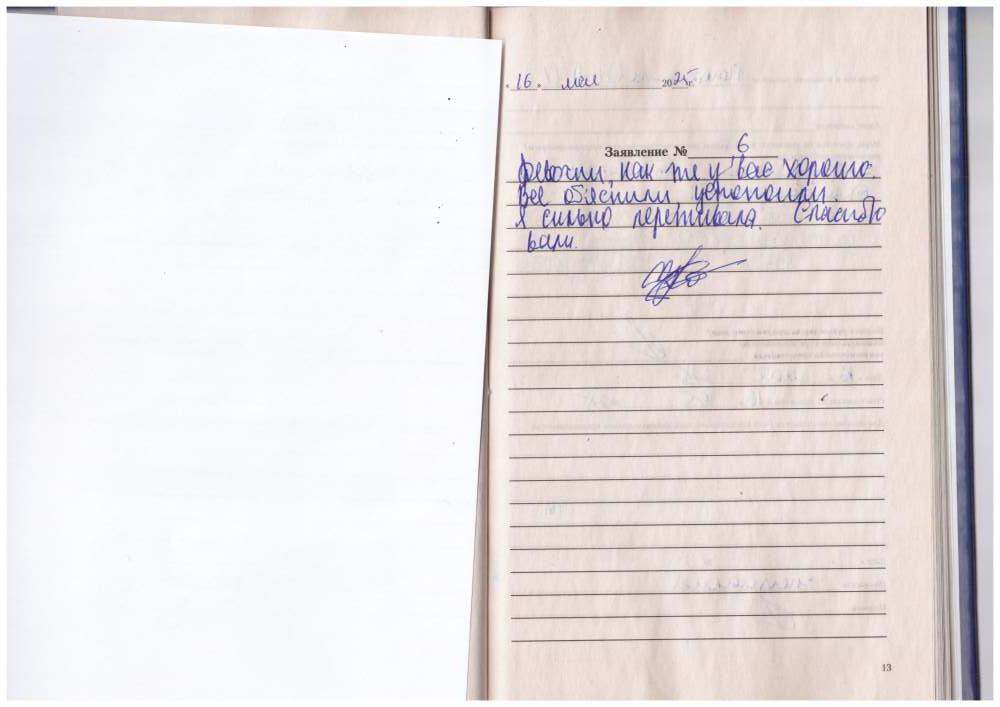 « 16 » мая 2025 г.
Заявление № 6
Девочки, как же у вас хорошо.
Все объяснили, успокоили.
Я сильно переживала. Спасибо
вам.
13